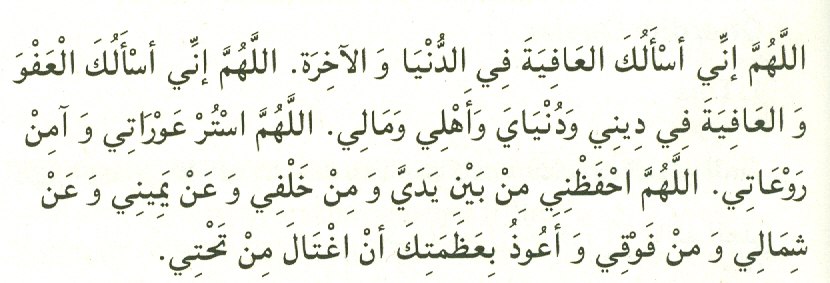 اللَّهُمَّ إنِّي أسْأَلُكَ العَافِيَةَ فِي الدُّنْيَا وَ الآخِرَة. اللَّهُمَّ إنِّي أسْأَلُكَ الْعَفْوَ
وَ العَافِيَةَ فِي دِيني وَدُنْيَايَ وَأَهْلِي وَمَالِي. اللَّهُمَّ اسْتُرْ عَوْرَاتِي وَ آمِنْ
رَوْعَاتِي. اللَّهُمَّ احْفَظْنِي مِنْ بَيْنِ يَدَيَّ وَ مِنْ خَلْفِي وَ عَنْ يَمِينِي وَ عَنْ
شِمَالِي وَ مِنْ فَوْقِي وَ أَعُوذُ بِعَظَمَتِكَ أنْ اغْتَالَ مِنْ تَحْتِي.